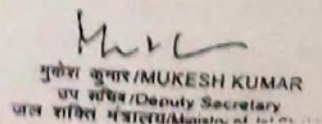 मुकेश कुमार/MUKESH KUMAR
उप सचिव/Deputy Secretary
जल शक्ति मंत्रालय/Ministry of